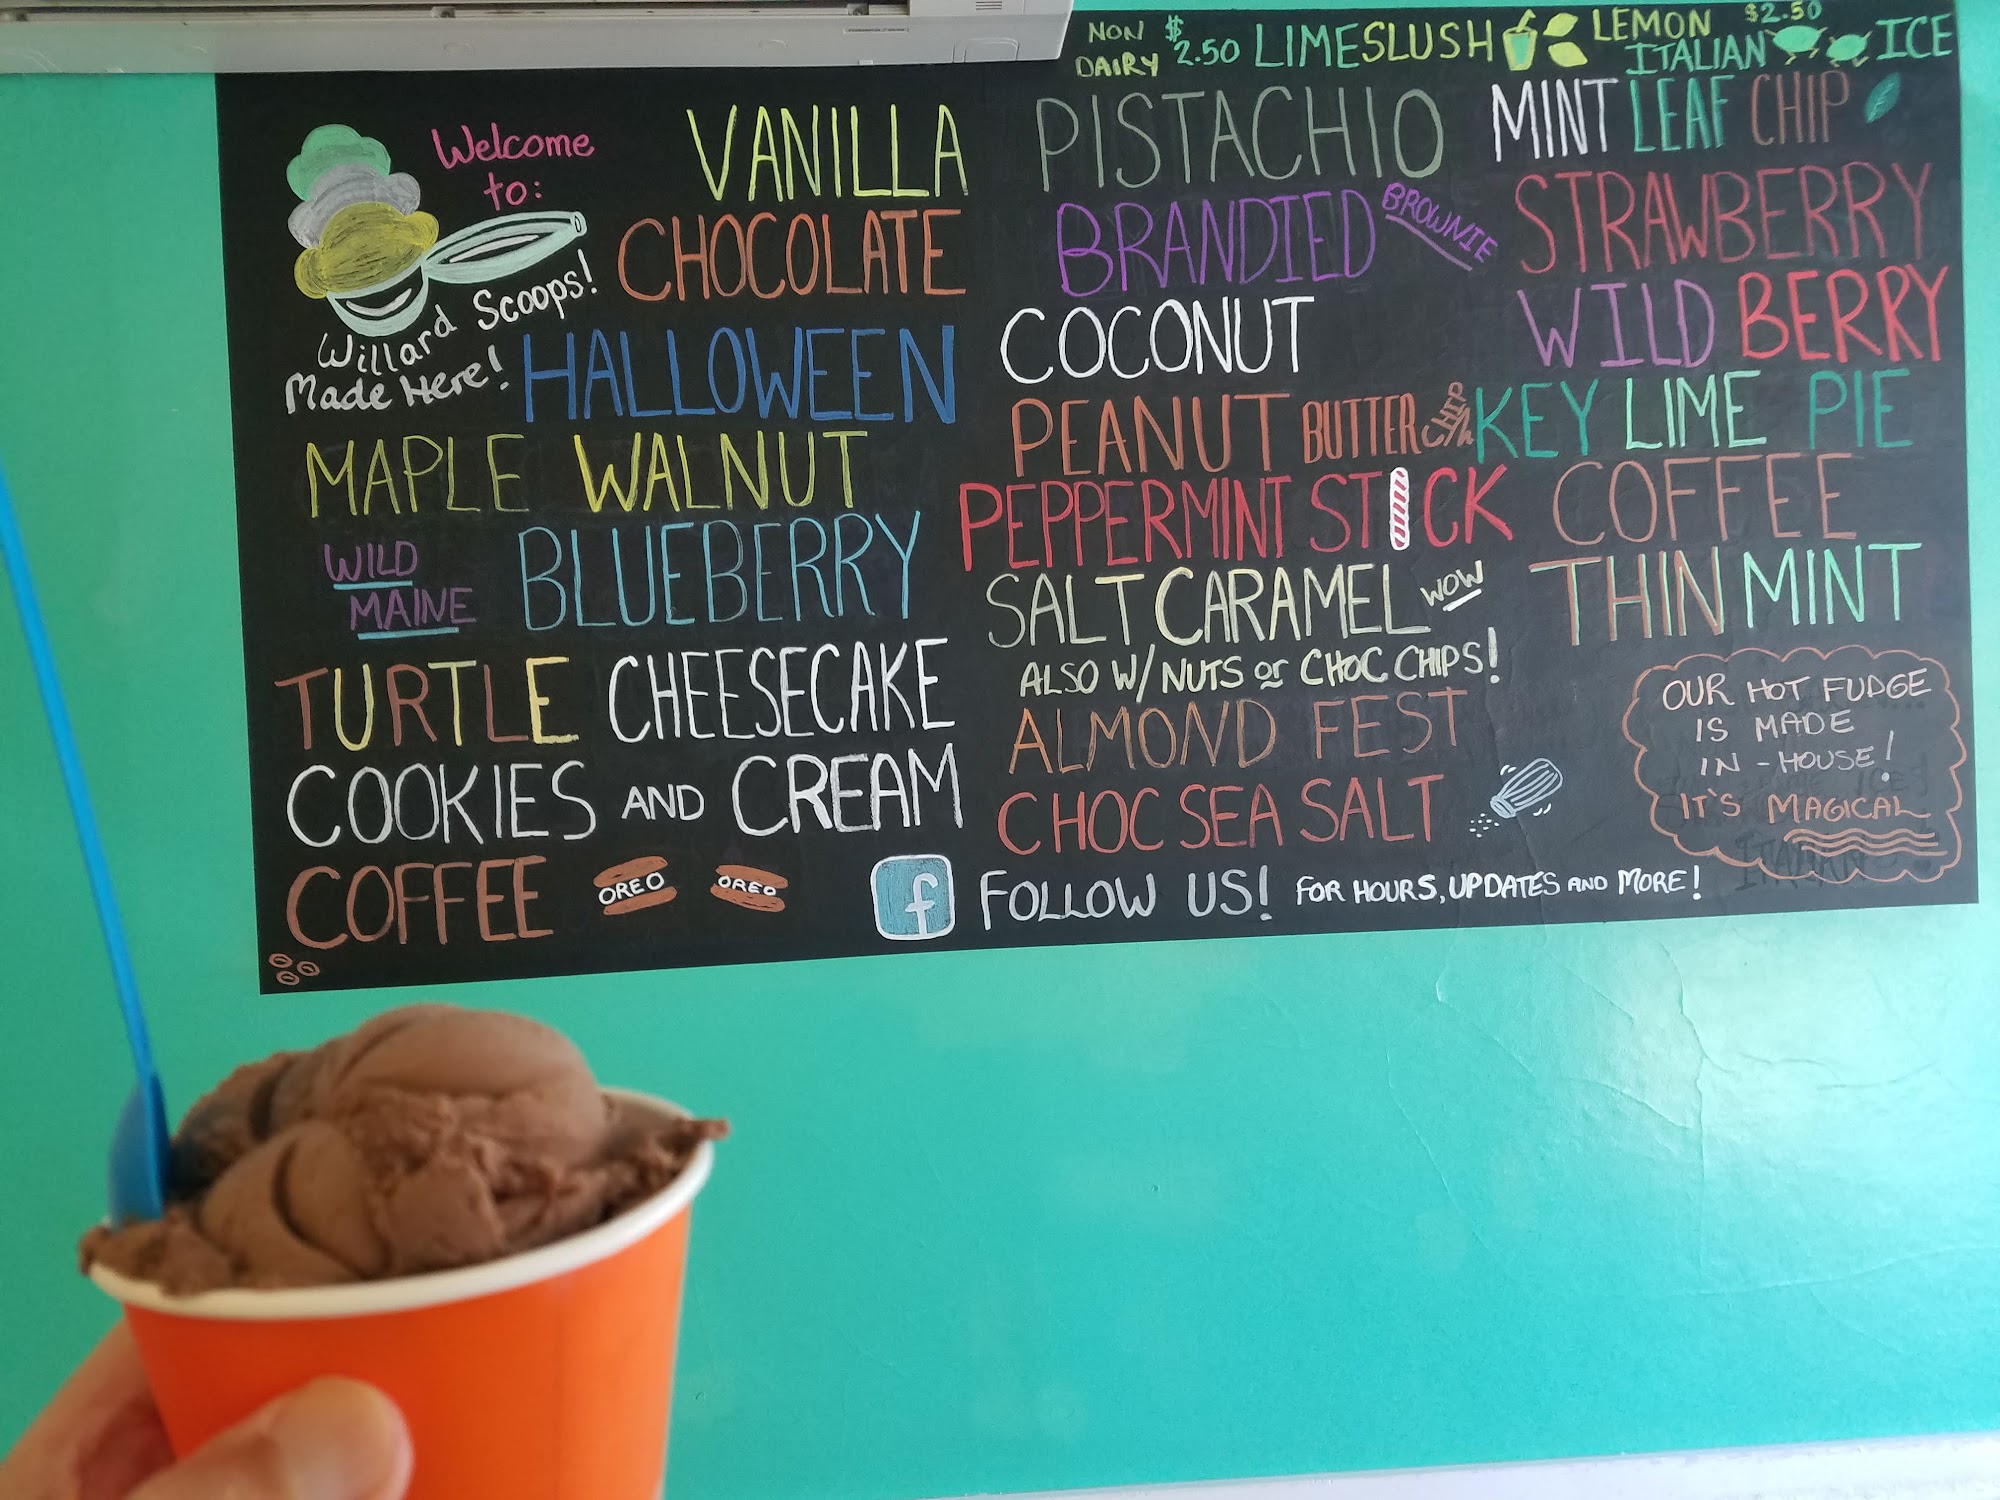 NON DAIRY $2.50 LIME SLUSH LEMON ITALIAN ICE $2.50
Welcome to:
Willard Scoops!
Made Here!
VANILLA
CHOCOLATE
HALLOWEEN
MAPLE WALNUT
WILD MAINE BLUEBERRY
TURTLE CHEESECAKE
COOKIES AND CREAM
COFFEE OREO OREO
PISTACHIO
BRANDIED BROWNIE
COCONUT
PEANUT BUTTER CHIP
PEPPERMINT STICK
SALT CARAMEL WOW
ALSO W/ NUTS or CHOC CHIPS!
ALMOND FEST
CHOC SEA SALT
MINT LEAF CHIP
STRAWBERRY
WILD BERRY
KEY LIME PIE
COFFEE
THIN MINT
OUR HOT FUDGE
IS MADE
IN-HOUSE!
IT'S MAGICAL
f FOLLOW US! FOR HOURS, UPDATES AND MORE!